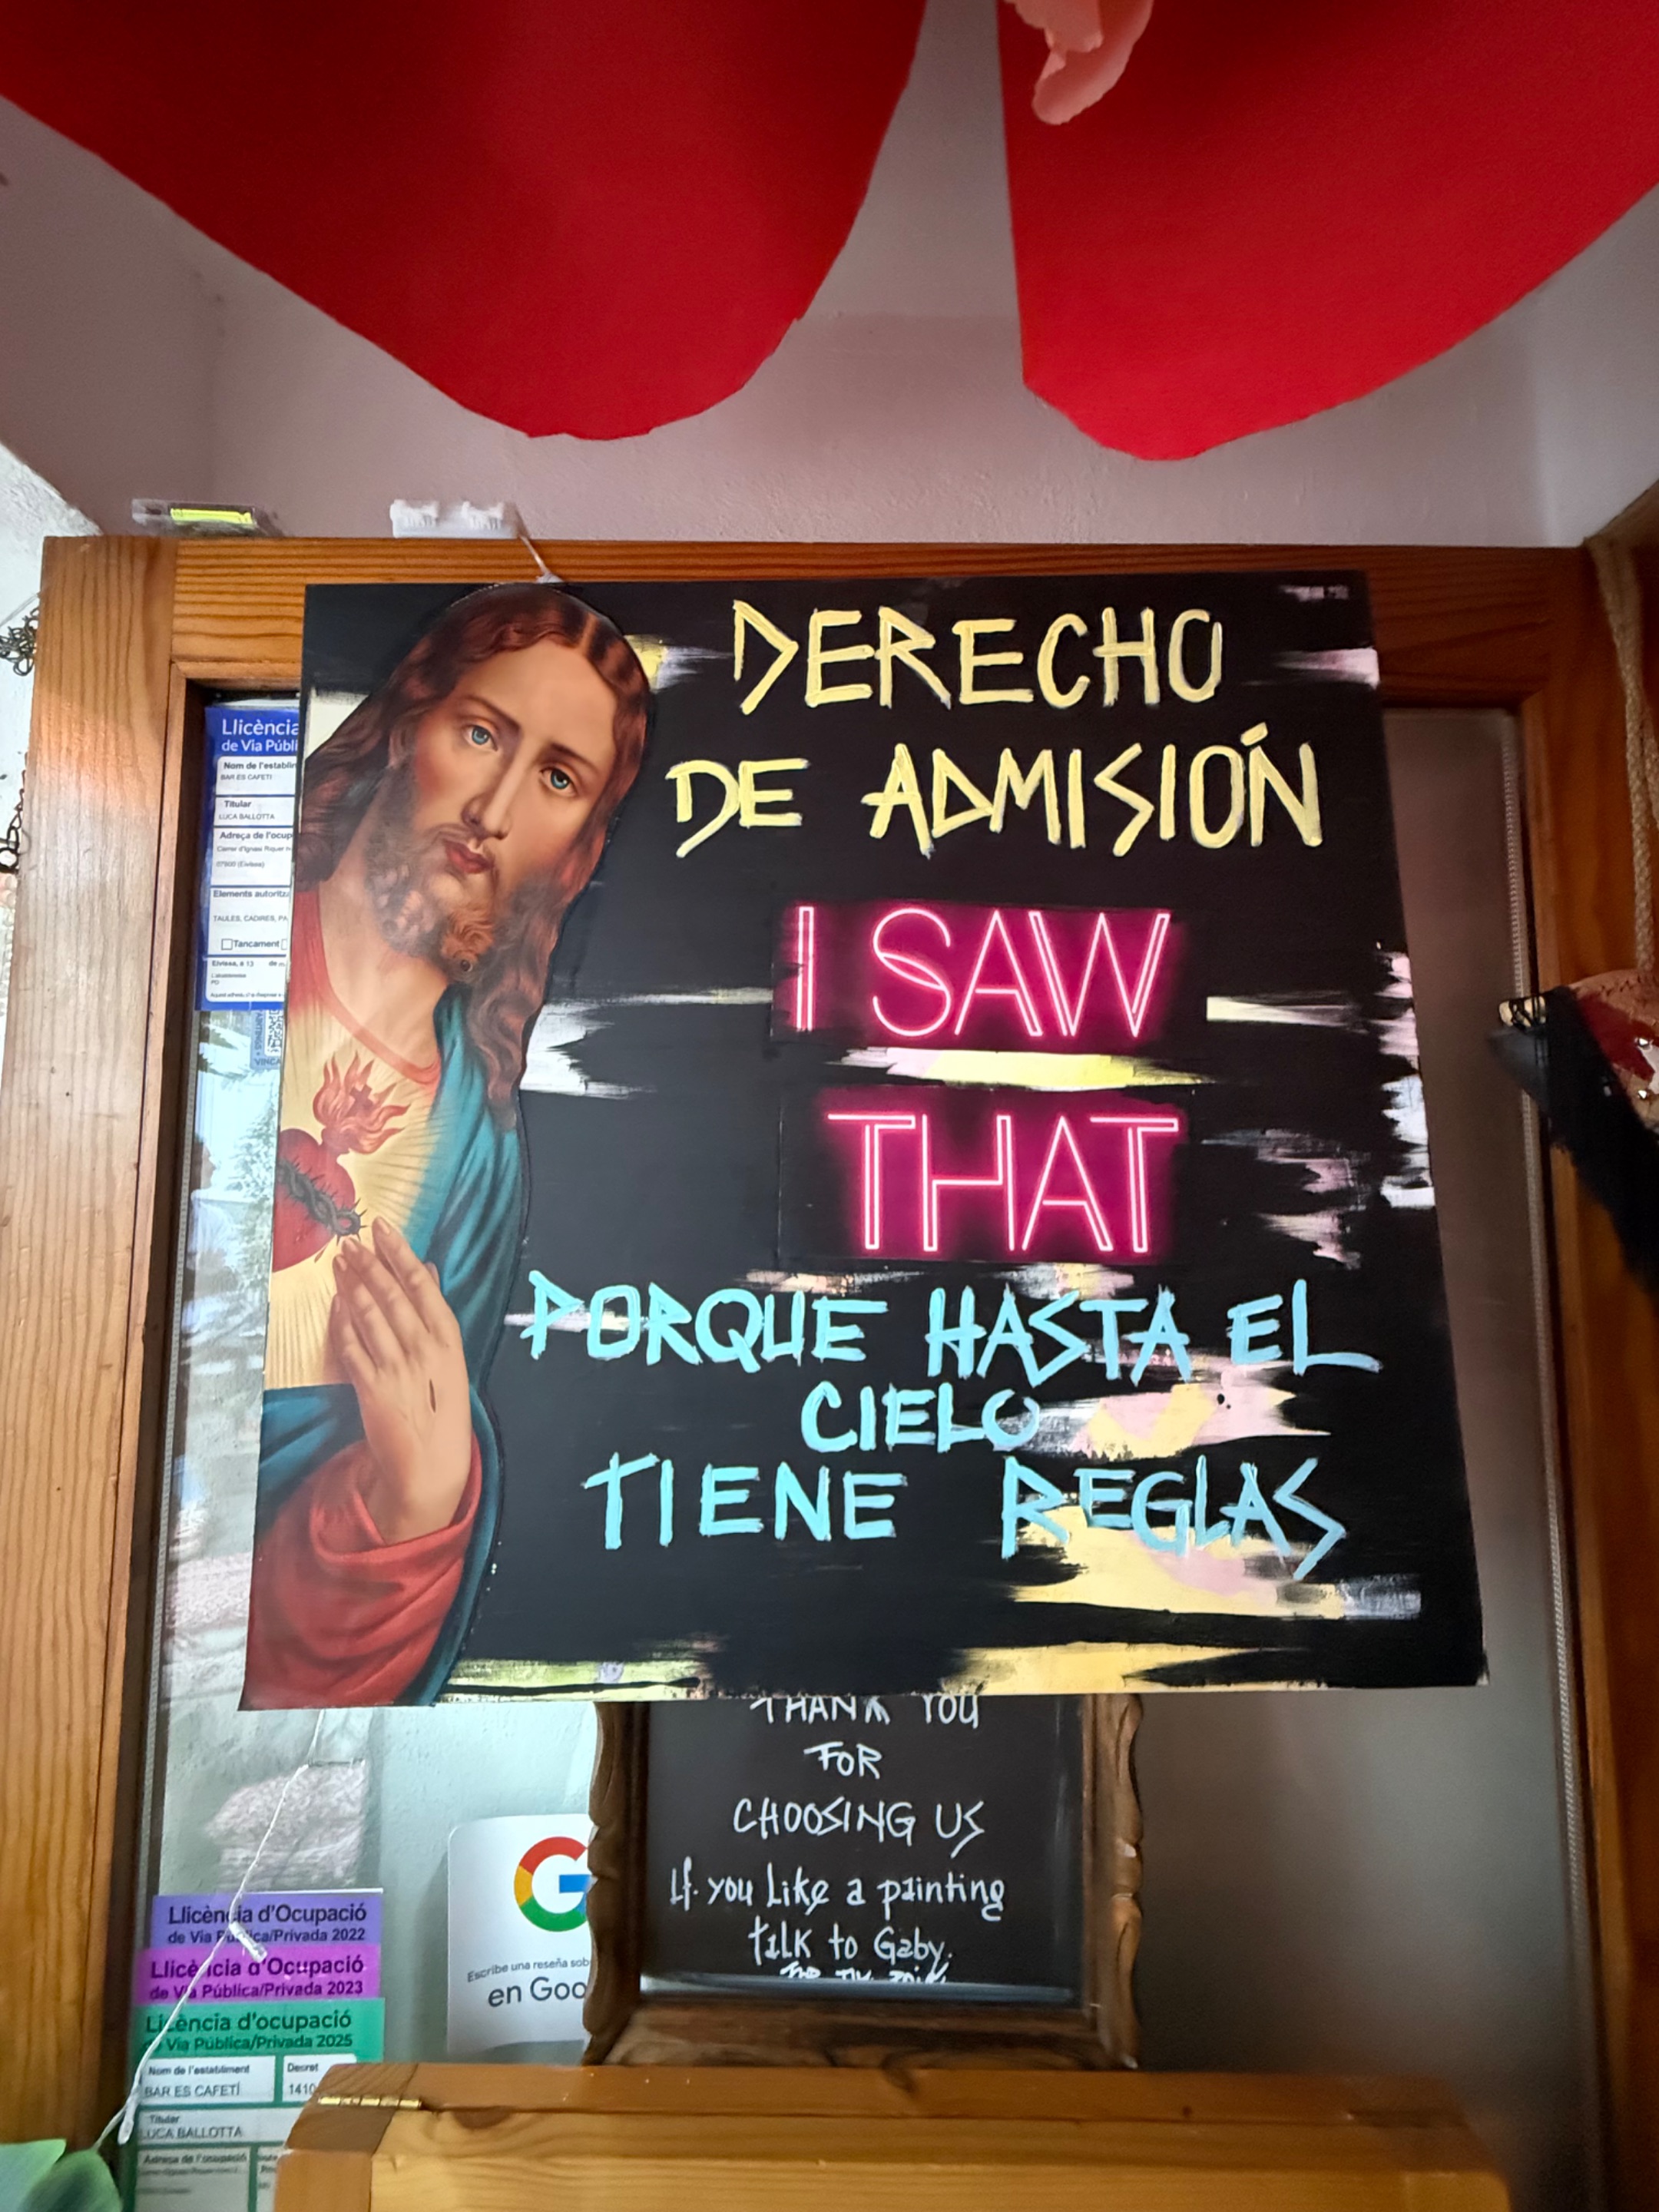 DERECHO
DE ADMISIÓN
I SAW
THAT
PORQUE HASTA EL
CIELO
TIENE REGLAS
THANK YOU
FOR
CHOOSING US
If you like a painting
talk to Gaby.
Llicència
de Via Públi
Nom de l'establim
BAR ES CAFETI
Titular
LUCA BALLOTTA
Adreça de l'ocup
Carrer d'Ignasi Riquer
07800 (Eivissa)
Elements autoritz
TAULES, CADIRES, PA
Tancament
Eivissa, a 13 de
VINCA
Escribe una reseña sob
en Goo
Llicència d'Ocupació
de Via Pública/Privada 2022
Llicència d'Ocupació
de Via Pública/Privada 2023
Llicència d'ocupació
de Via Pública/Privada 2025
Nom de l'establiment Decret
BAR ES CAFETÍ 1410
Titular
LUCA BALLOTTA
Adreça de l'ocupació